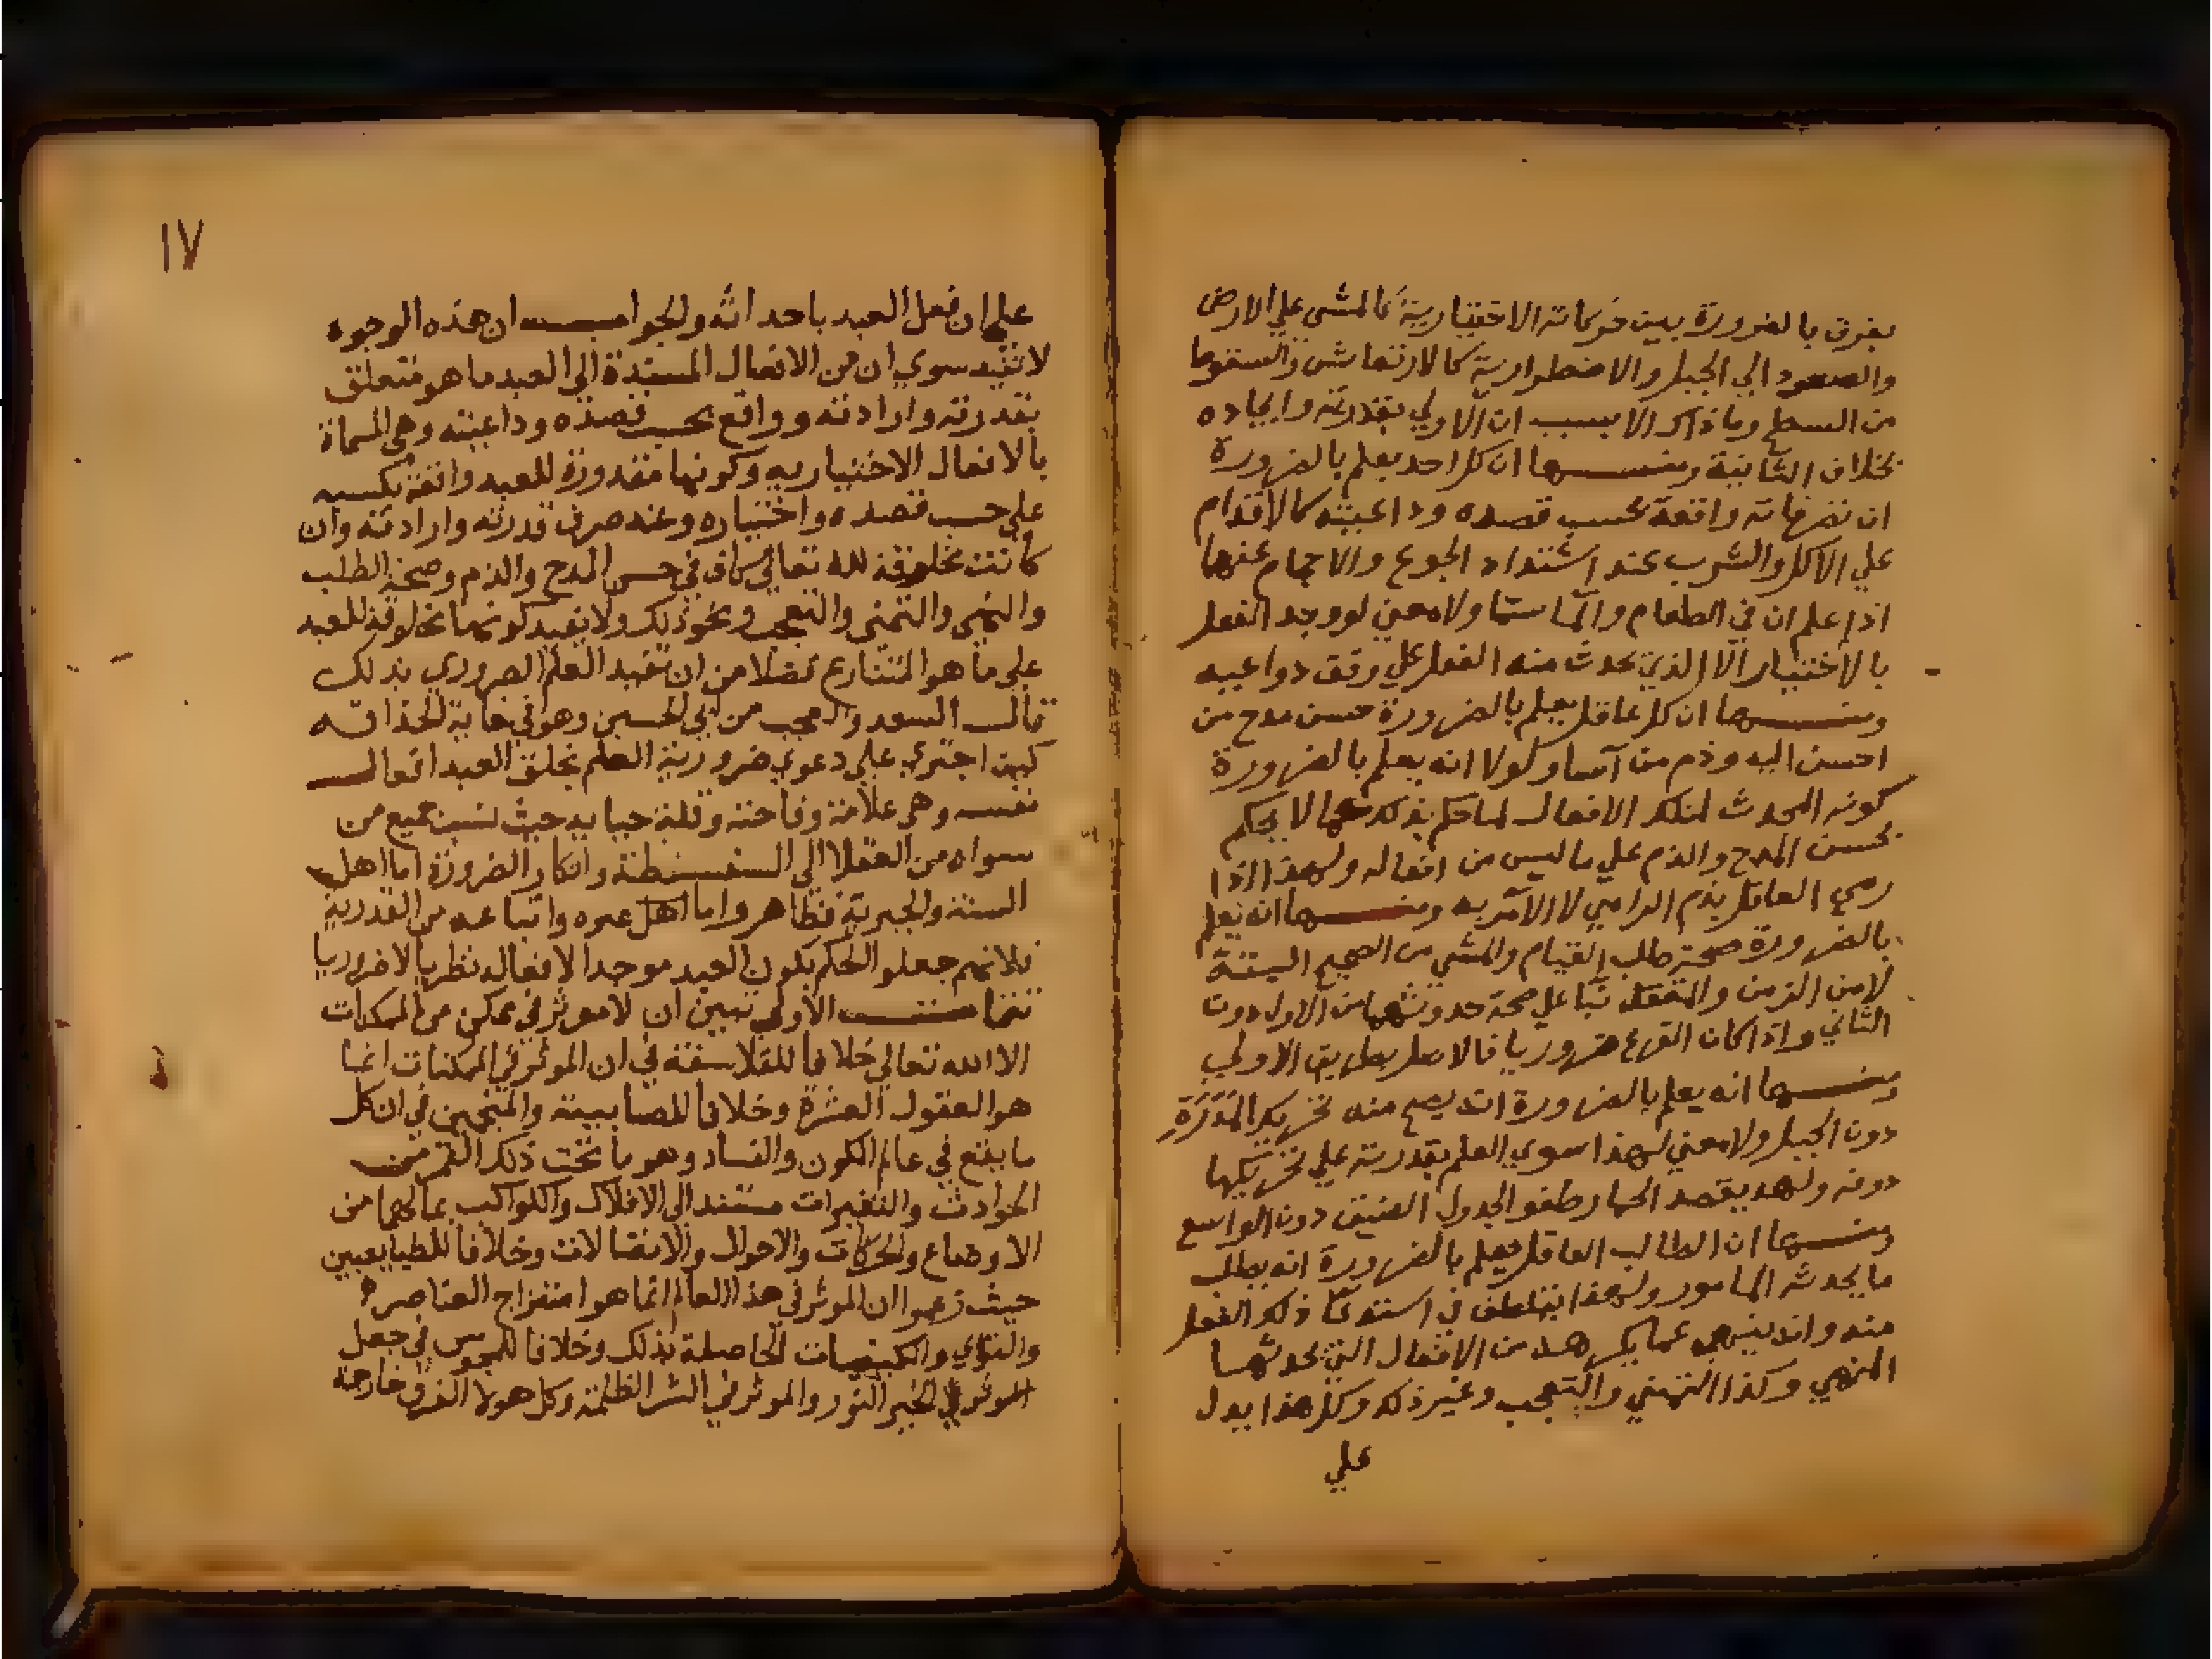 يفرق بالضرورة بين حركاته الاختيارية كالمشي علي الارض
والصعود الي الجبل والاضطرارية كالارتعاش والسقوط
من السطح وما ذاك الا بسبب ان الاولي بقدرته وايجاده
بخلاف الثانية ومنها ان كل احد يعلم بالضرورة
ان تصرفاته واقعة بحسب قصده وداعيته كالاقدام
علي الاكل والشرب عند اشتداد الجوع والاحجام عنها
اذا علم ان في الطعام والما سما ولا معني لموجد الفعل
بالاختيار الا الذي يحدث منه الفعل علي وفق دواعيه
ومنها ان كل عاقل يعلم بالضرورة حسن مدح من
احسن اليه وذم من اسا ولولا انه يعلم بالضرورة
كونه المحدث لتلك الافعال لما حكم بذلك كما لا يحكم
بحسن المدح والذم علي ما ليس من افعاله ولهذا اذا
رمي العاقل يذم الرامي لا الآمر به ومنها انه يعلم
بالضرورة صحة طلب القيام والمشي من الصحيح البنية
لا من الزمن والمقعد بنا علي صحة حدوثهما من الاول دون
الثاني واذا كان الفرع ضروريا فالاصل بطريق الاولي
ومنها انه يعلم بالضرورة انه يصح منه تحريك المدرة
دون الجبل ولا معني لهذا سوي العلم بقدرته علي تحريكها
دونه ولهذا يقصد الحمار طفر الجدول الضيق دون الواسع
ومنها ان الطالب العاقل يعلم بالضرورة انه يطلب
ما يحدثه المامور ولهذا يتلطف في استدعآ ذلك الفعل
منه وانه ينهي عما يكرهه من الافعال التي يحدثها
المنهي وكذا التمني والتعجب وغير ذلك وكل هذا يدل
علي
١٧
علي ان فعل العبد باحداثه والجواب ان هذه الوجوه
لا تفيد سوي ان من الافعال المستندة الي العبد ما هو متعلق
بقدرته وارادته وواقع بحسب قصده وداعيته وهي المسماة
بالافعال الاختياريه وكونها مقدورة للعبد واقعة بكسبه
علي حسب قصده واختياره وعند صرف قدرته وارادته وان
كانت مخلوقة لله تعالي كاف في حسن المدح والذم وصحة الطلب
والنهي والتمني والتعجب ونحو ذلك ولا يفيد كونها مخلوقة للعبد
علي ما هو المتنازع فضلا من ان تفيد العلم الضروري بذلك
قال السعد والعجب من ابي الحسين وهو في غاية الحذاقه
كيف اجتري علي دعوي ضرورية العلم بخلق العبد افعال
نفسه وهي علامة وقاحته وقلة حيايه حيث نسب جميع من
سواه من العقلا الي السفسطة وانكار الضرورة اما اهل
السنة والجبرية فظاهر واما اهل غيره واتباعه من القدرية
فلانهم جعلوا الحكم بكون العبد موجدا لافعاله نظريا لا ضروريا
تتمات الاولي تبين ان لا موثر في ممكن من الممكنات
الا الله تعالي خلافا للفلاسفة في ان الموثر في الممكنات انما
هو العقول العشرة وخلافا للصابيية والمنجمين في ان كل
ما يقع في عالم الكون والفساد وهو ما تحت ذلك القمر من
الحوادث والتغيرات مستند الي الافلاك والكواكب بما لها من
الاوضاع والحركات والاحوال والاتصالات وخلافا للطبايعيين
حيث زعموا ان الموثر في هذا العالم انما هو امتزاج العناصر
والقوي والكيفيات الحاصلة بذلك وخلافا للمجوس في جعل
الموثر في الخير النور والموثر في الشر الظلمة وكل هولا الفرق خارجة